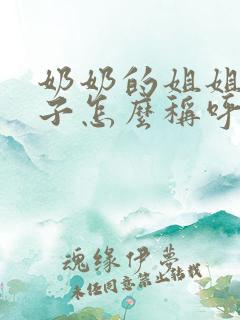 奶奶的姐姐
子怎麼稱呼
魂缘伊夢
未经同意禁止转载